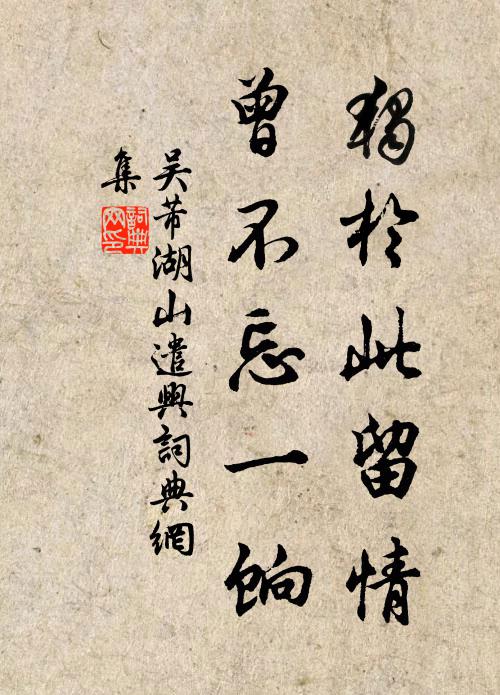 獨於此留情
曾不忘一餉
吳芾湖山遣興詞典網
集
詞典
网印